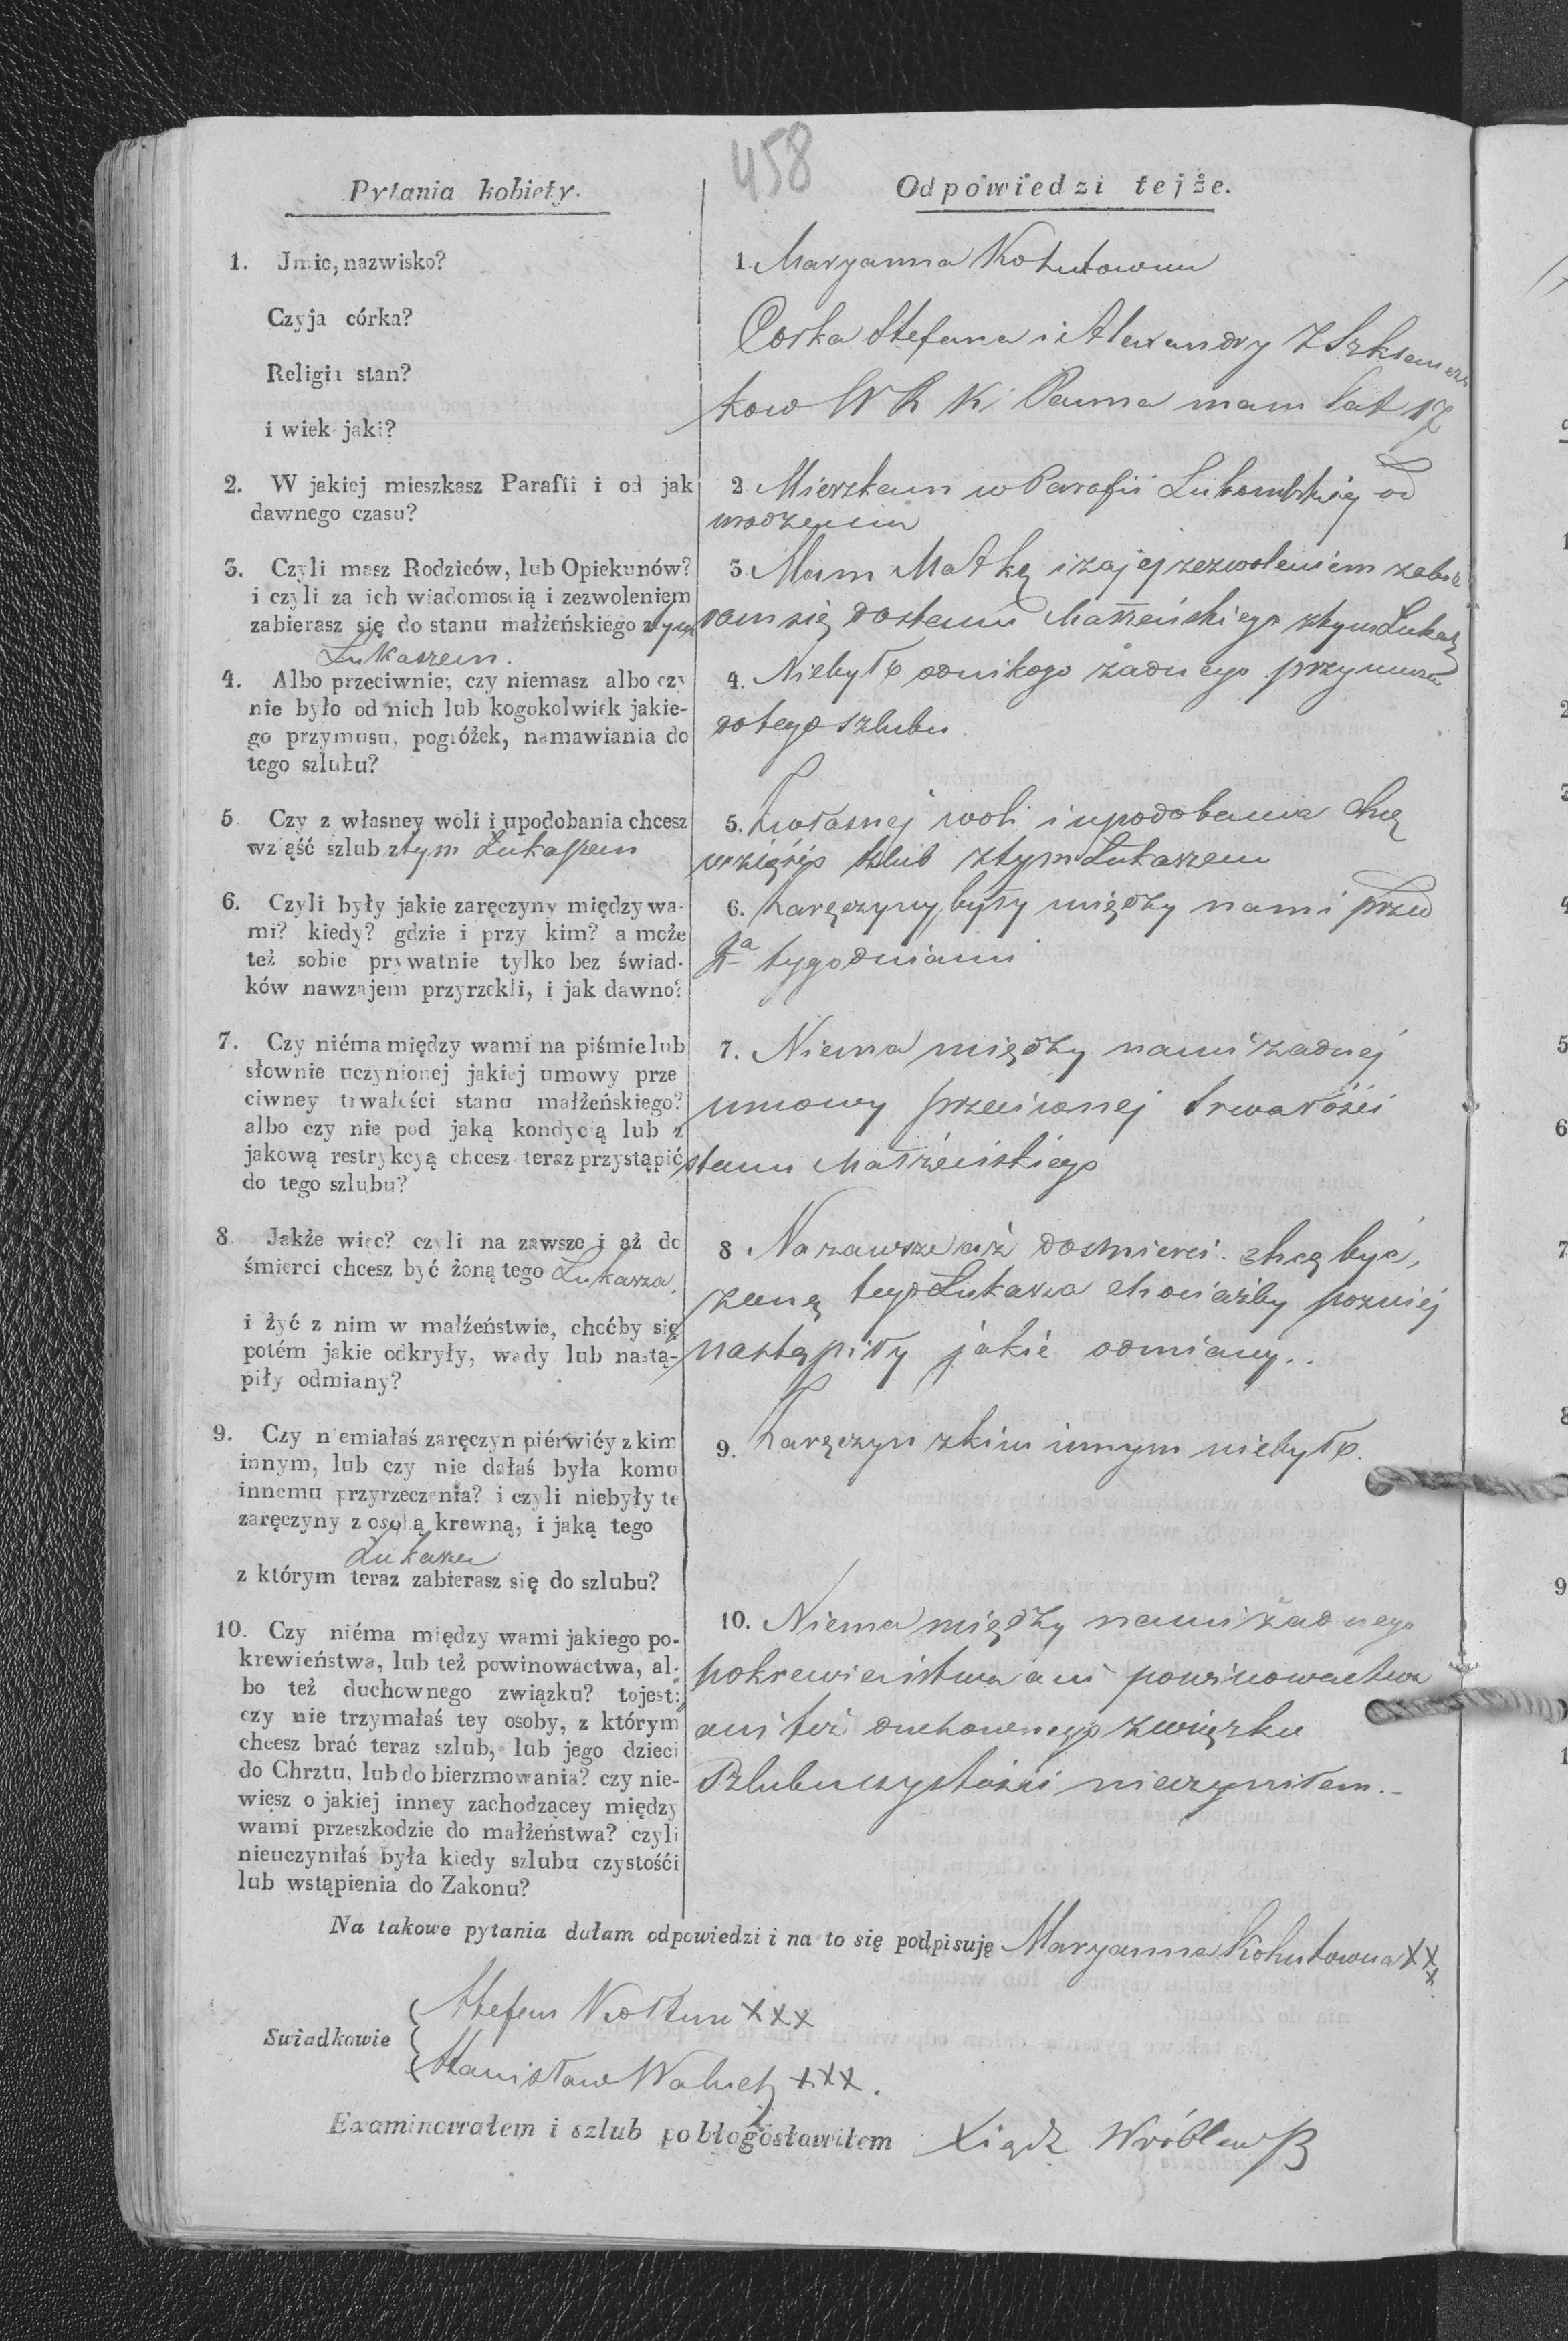 458
Pytania kobiety.
1. Jmie, nazwisko?
Czyja córka?
Religia stan?
i wiek jaki?
2. W jakiej mieszkasz Parafii i od jak
dawnego czasu?
3. Czyli masz Rodziców, lub Opiekunów?
i czyli za ich wiadomością i zezwoleniem
zabierasz się do stanu małżeńskiego z tym
Łukaszem.
4. Albo przeciwnie, czy niemasz albo czy
nie było od nich lub kogokolwiek jakie-
go przymusu, pogróżek, namawiania do
tego szlubu?
5 Czy z własney woli i upodobania chcesz
wziąść szlub z tym Łukaszem
6. Czyli były jakie zaręczyny między wa-
mi? kiedy? gdzie i przy kim? a może
też sobie prywatnie tylko bez świad-
ków nawzajem przyrzekli, i jak dawno?
7. Czy niéma między wami na piśmie lub
słownie uczynionej jakiej umowy prze
ciwney trwałości stanu małżeńskiego?
albo czy nie pod jaką kondycią lub z
jakową restrykcyą chcesz teraz przystąpić
do tego szlubu?
8. Jakże więc? czyli na zawsze i aż do
śmierci chcesz być żoną tego Łukasza
i żyć z nim w małżeństwie, choćby się
potém jakie odkryły, wady lub nastą-
piły odmiany?
9. Czy niemiałaś zaręczyn piérwiéy z kim
innym, lub czy nie dałaś była komu
innemu przyrzeczenia? i czyli niebyły te
zaręczyny z osobą krewną, i jaką tego
Łukasza
z którym teraz zabierasz się do szlubu?
10. Czy niéma między wami jakiego po-
krewieństwa, lub też powinowactwa, al-
bo też duchownego związku? tojest:
czy nie trzymałaś tey osoby, z którym
chcesz brać teraz szlub, lub jego dzieci
do Chrztu, lub do bierzmowania? czy nie-
więsz o jakiej inney zachodzącey między
wami przeszkodzie do małżeństwa? czyli
nieuczyniłaś była kiedy szlubu czystośći
lub wstąpienia do Zakonu?
Odpowiedzi tejże.
1. Maryanna Kohutowna
Corka Stefana i Alexandry Z
kow W R K Panna mam lat 17
2 Mieszkam w Parafii od
urodzenia
3 Mam Matkę i za jej zezwoleniem zabie
ram się do stanu Małżeńskiego z tym Łukasz
4. Niebyło od nikogo żadnego przymusu
do tego szlubu
5. Z własnej woli i upodobania chcę
wziąść szlub z tym Łukaszem
6. Zaręczyny były między nami przed
2a tygodniami
7. Niema między nami żadnej
umowy przeciwnej trwałości
stanu Małżeńskiego
8 Na zawsze i aż do smierci chcę być
żoną tego Łukasza chociażby pozniej
nastąpiły jakie odmiany..
9. Zaręczyn z kim innym niebyło.
10. Niema między nami żadnego
pokrewieństwa ani powinowactwa
ani też duchownego związku
Szlubu czystości nieczyniłem.-
Na takowe pytania dałam odpowiedzi i na to się podpisuję Maryanna Kohutowna XXX
Swiadkowie
Stefan Kołtun XXX
Stanisław XXX.
Examinowałem i szlub pobłogosławiłem Xiądz